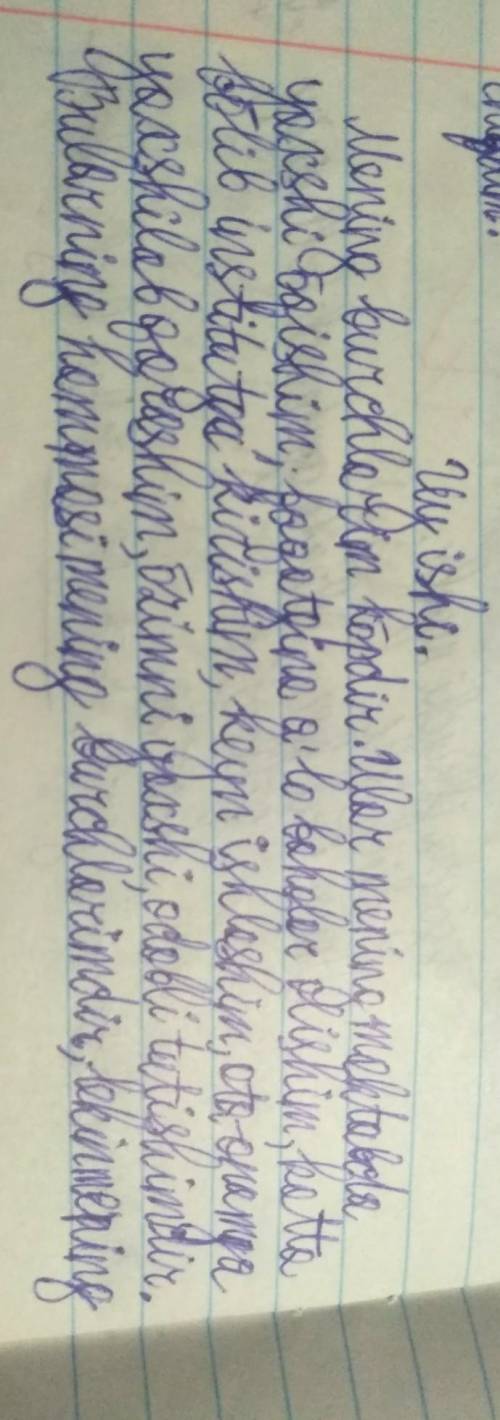 Uy ishi.
Mening burchlarim kōpdir. Ular mening maktabda
yaxshi ōqishim, faqatgina a'lo baholar olishim, katta
bōlib institutga kirishim, keyin ishlashim, ota-onamga
yaxshilab qarashim, ōzimni yaxshi, odobli tutishimdir.
Bularning hammasi mening burchlarimdir, lekin mening